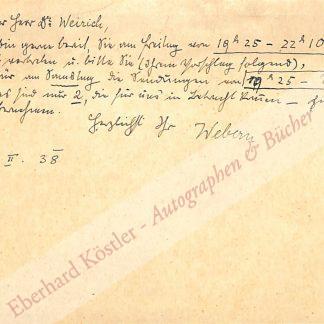 Herr Dr. Weirich,
bin gern bereit, Sie am Freitag von 19 h 25 – 22 h 10
zu vertreten u. bitte Sie (Ihrem Vorschlag folgend),
für am Samstag die Sendungen von 19 h 25 –
es sind nur 2, die für uns in Betracht kommen –
Herzlichst Ihr Webern
II. 38
Eberhard Köstler - Autographen & Bücher